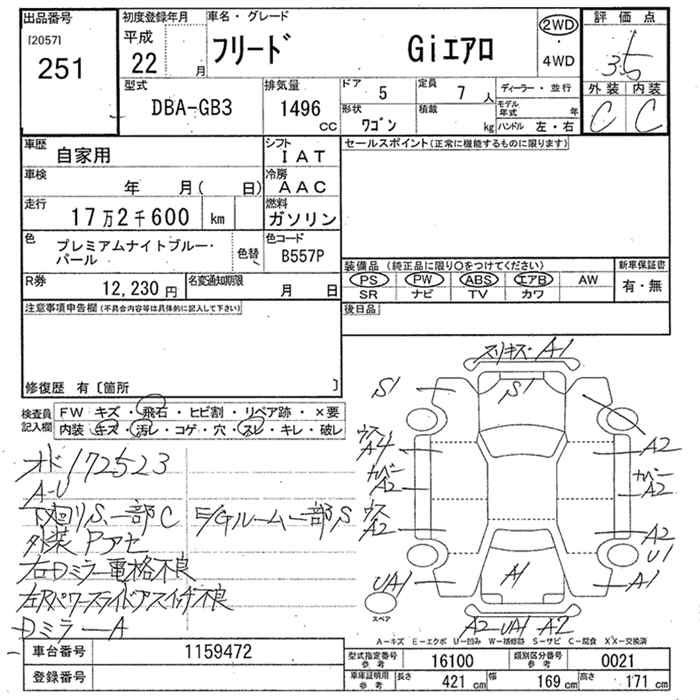 出品番号
[2057]
251
初度登録年月
平成
22 月
車名・グレード
フリード Giエアロ
2WD
・
4WD
評価点
3.5
外装 内装
C C
型式
DBA-GB3
排気量
1496 cc
ドア 5
定員 7 人
形状 ワゴン
積載 kg
ディーラー・並行
モデル年式 年
ハンドル 左・右
車歴 自家用
シフト IAT
セールスポイント(正常に機能するものに限ります)
車検 年 月( 日)
冷房 AAC
走行 17万2千600 km
燃料 ガソリン
色 プレミアムナイトブルー・パール
色替
色コード B557P
装備品(純正品に限り○をつけてください)
新車保証書
PS PW ABS エアB AW
有・無
SR ナビ TV カワ
R券 12,230円
名変通知期限 月 日
後日品
注意事項申告欄(不具合内容等は具体的に記入して下さい)
修復歴 有〔箇所 〕
検査員記入欄
FW キズ・飛石・ヒビ割・リペア跡・×要
内装 キズ・汚レ・コゲ・穴・スレ・キレ・破レ
オド172523
A-U
下廻りS、一部C E/Gルーム一部S
外装Pアセ
右Dミラー電格不良
左Rパワースライドドアスイッチ不良
DミラーA
スリキズ・A1
S1 S1
ウス A4 A2
カバー A2 カバー A2
ウス A2 A2
U1
UA1 A1 A1
スペア
A2 UA1 A2
A-キズ E-エクボ U-凹み W-補修跡 S-サビ C-腐食 XX-交換済
車台番号 1159472
登録番号
型式指定番号 参考 16100
類別区分番号 参考 0021
車庫証明用 参考 長さ 421 cm 幅 169 cm 高さ 171 cm